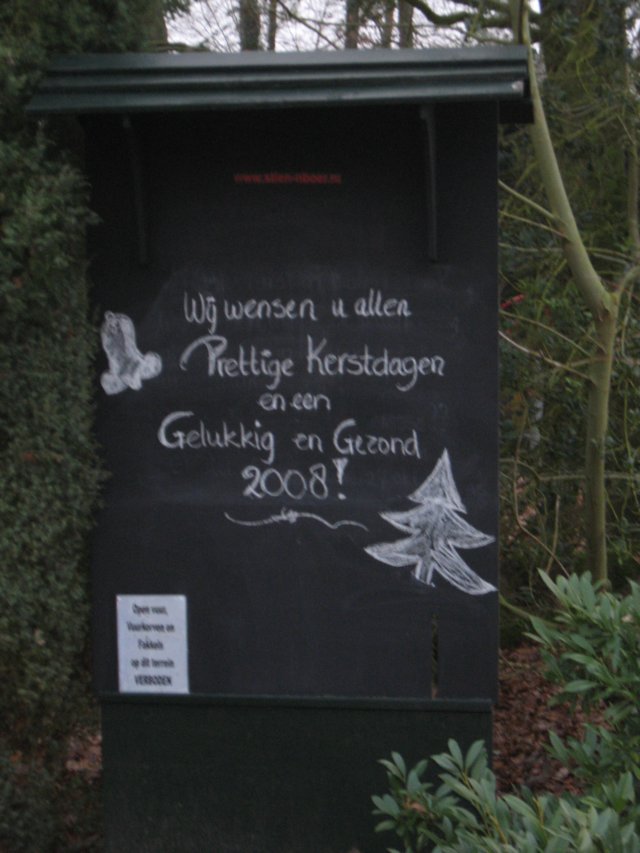 Wij wensen u allen
Prettige Kerstdagen
en een
Gelukkig en Gezond
2008!
Open vuur,
Vuurkorven en
Fakkels
op dit terrein
VERBODEN